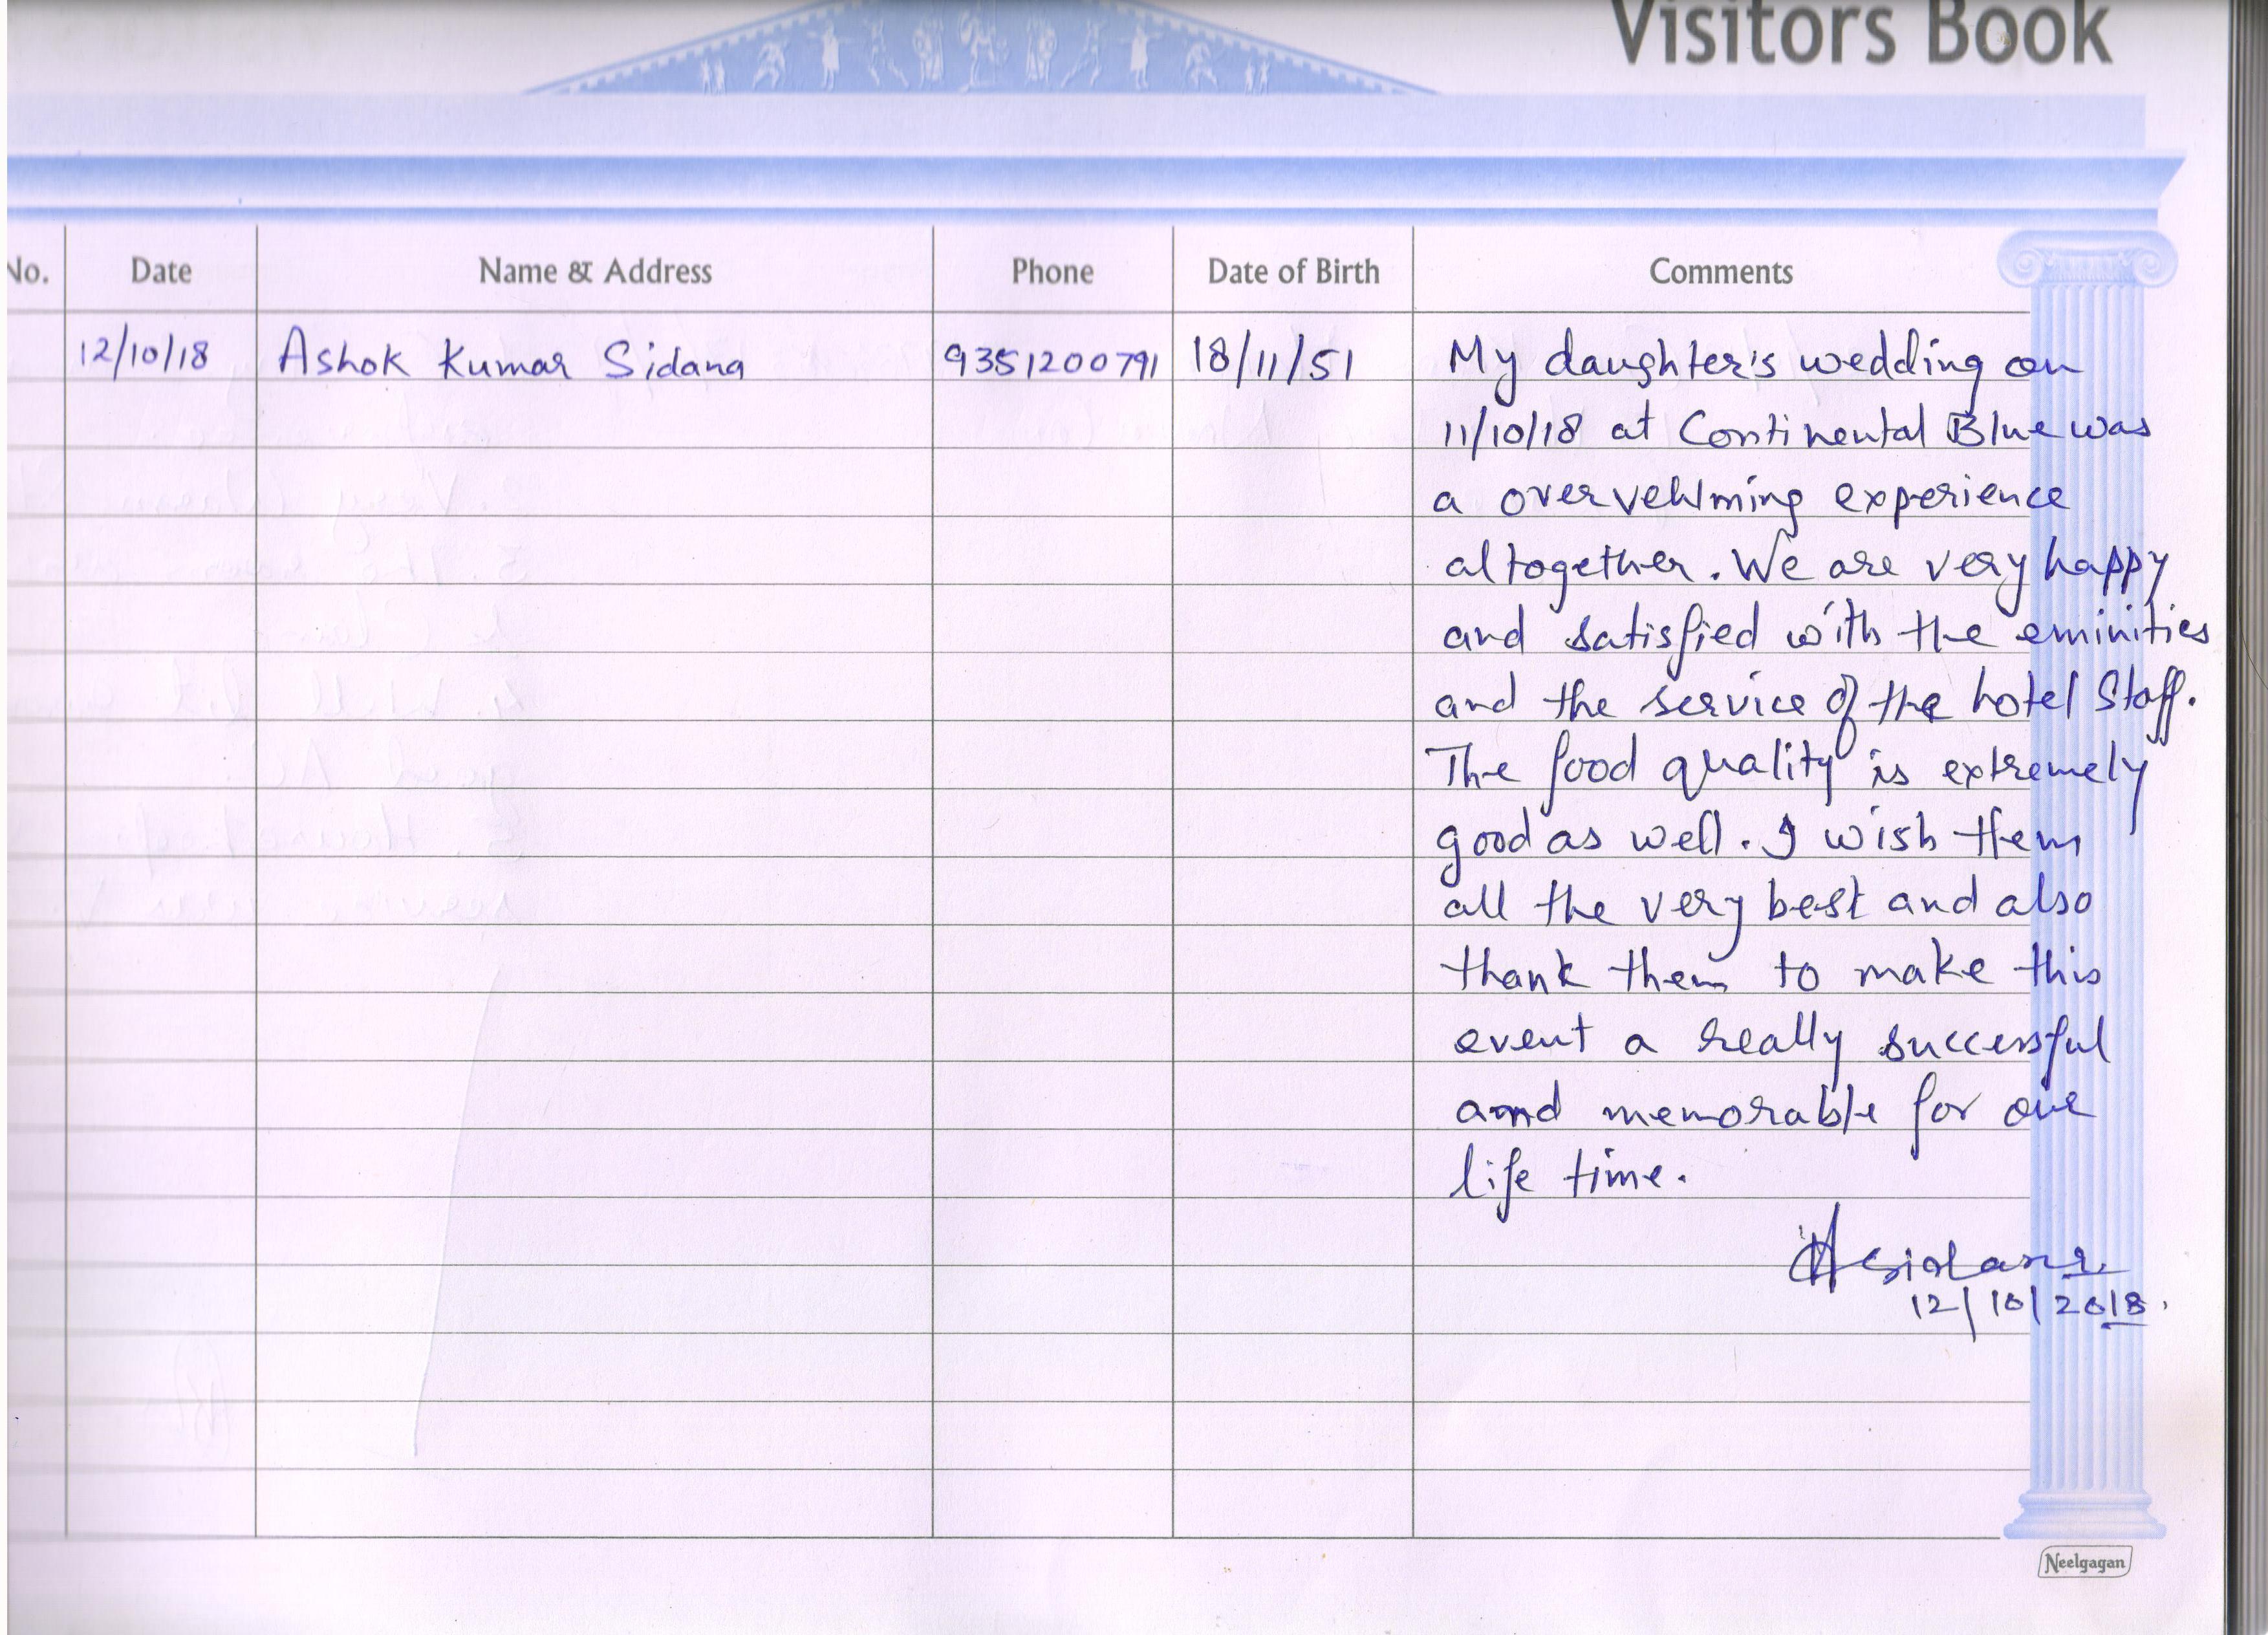 Visitors Book
No. Date Name & Address Phone Date of Birth Comments
12/10/18 Ashok Kumar Sidana 9351200791 18/11/51 My daughter's wedding on
11/10/18 at Continental Blue was
a overvehlming experience
altogether. We are very happy
and satisfied with the eminities
and the service of the hotel Staff.
The food quality is extremely
good as well. I wish them
all the very best and also
thank them to make this
event a really successful
and memorable for our
life time.
Asidana
12/10/2018.
Neelgagan